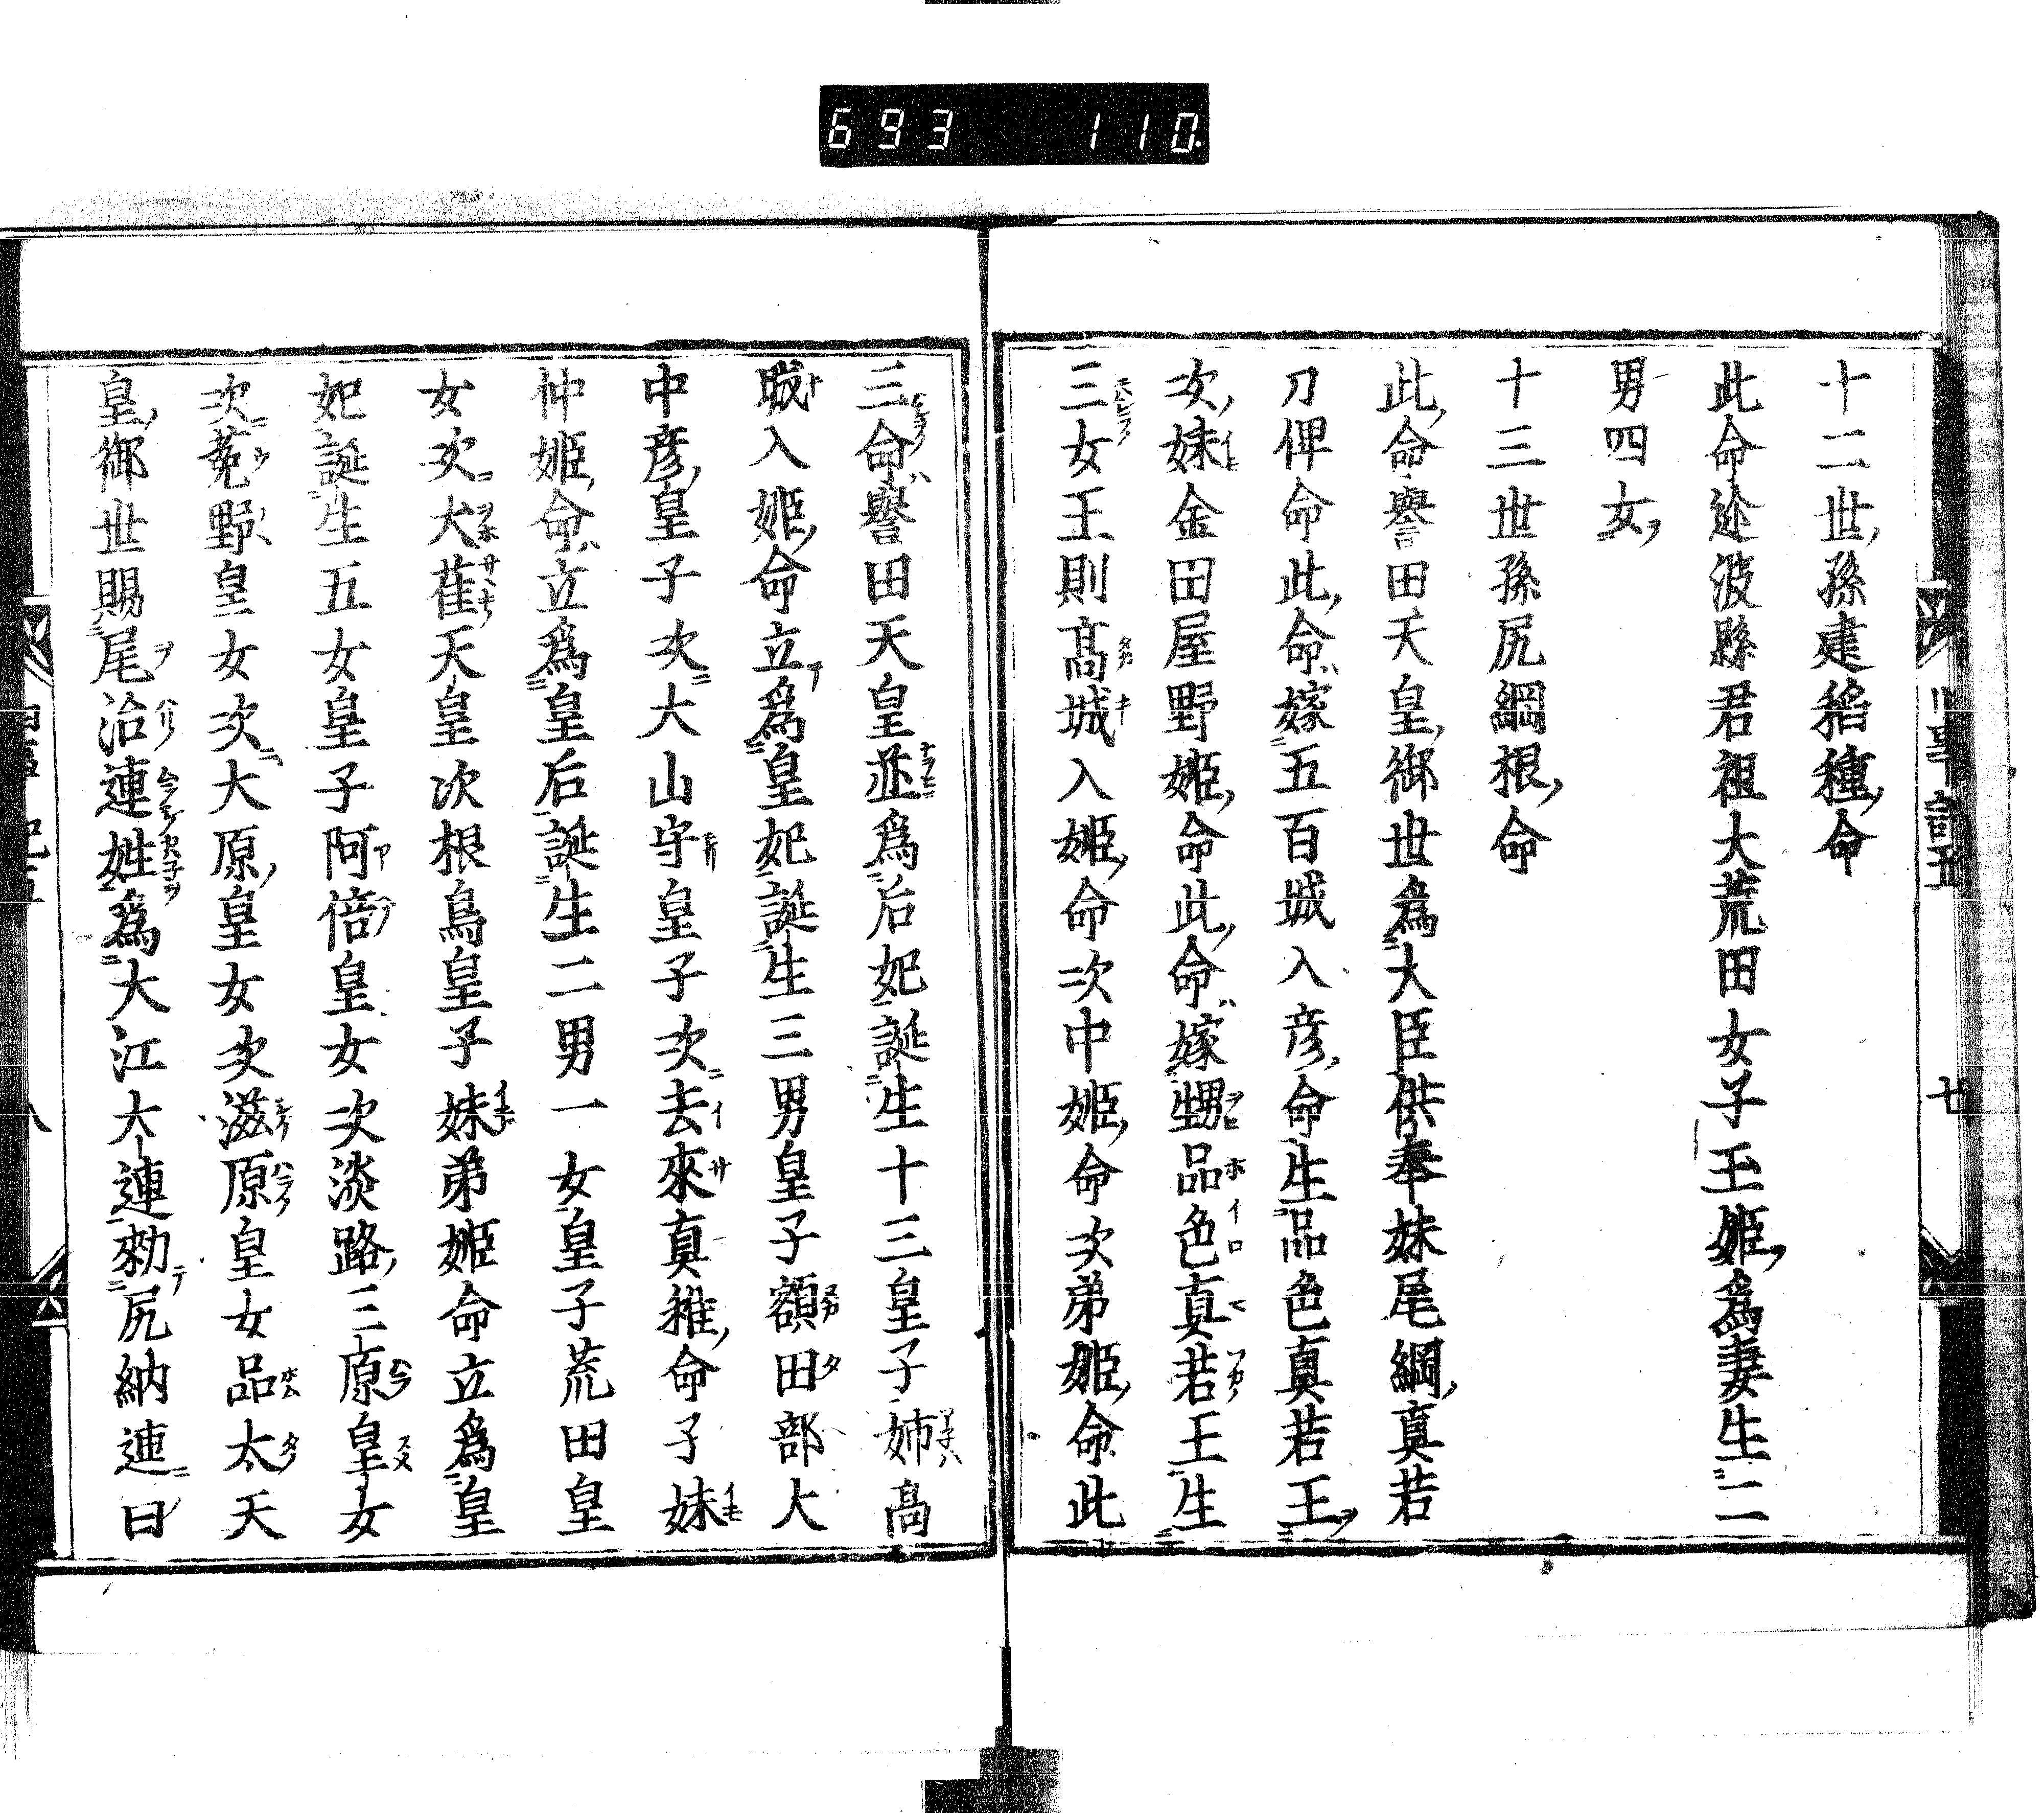 693 110
十二世孫建稲種命
此命迩波縣君祖大荒田女子玉姫爲妻生二
男四女
十三世孫尻綱根命
此命譽田天皇御世爲大臣供奉妹尾綱真若
刀俾命此命嫁五百城入彦命生品色真若王
次妹金田屋野姫命此命嫁甥品色真若王生
三女王則髙城入姫命次中姫命次弟姫命此
三命譽田天皇並爲后妃誕生十三皇子姉髙
城入姫命立爲皇妃誕生三男皇子額田部大
中彦皇子次大山守皇子次去來真稚命子妹
仲姫命立爲皇后誕生二男一女皇子荒田皇
女次大萑天皇次根鳥皇子妹弟姫命立爲皇
妃誕生五女皇子阿倍皇女次淡路三原皇女
次菀野皇女次大原皇女次滋原皇女品太天
皇御世賜尾治連姓爲大江大連勑尻納連曰